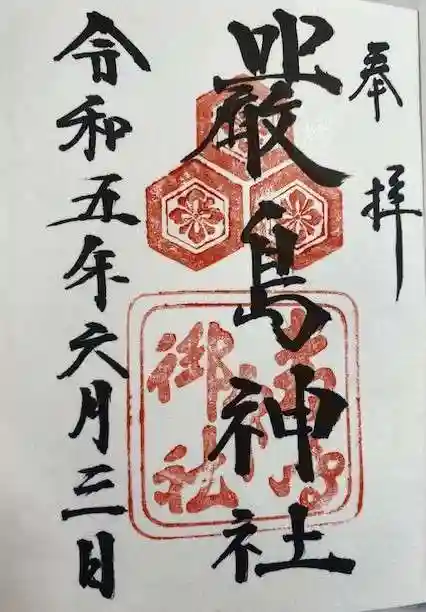 奉拝
嚴島神社
令和五年六月三日
御社